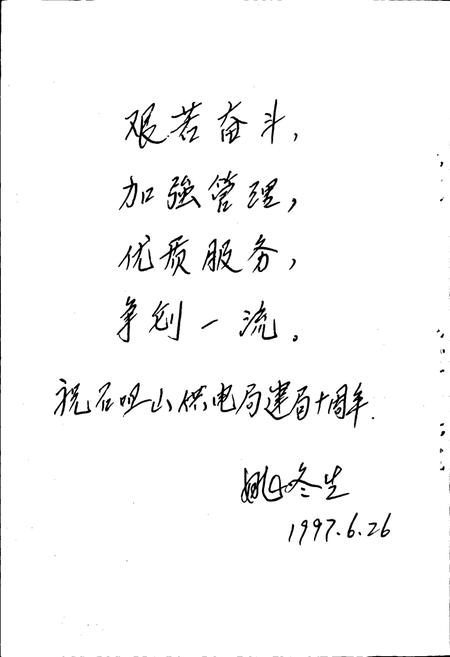 艰苦奋斗，
加強管理，
优质服务，
争创一流。
祝石咀山供电局建局十周年.
姚冬生
1997.6.26